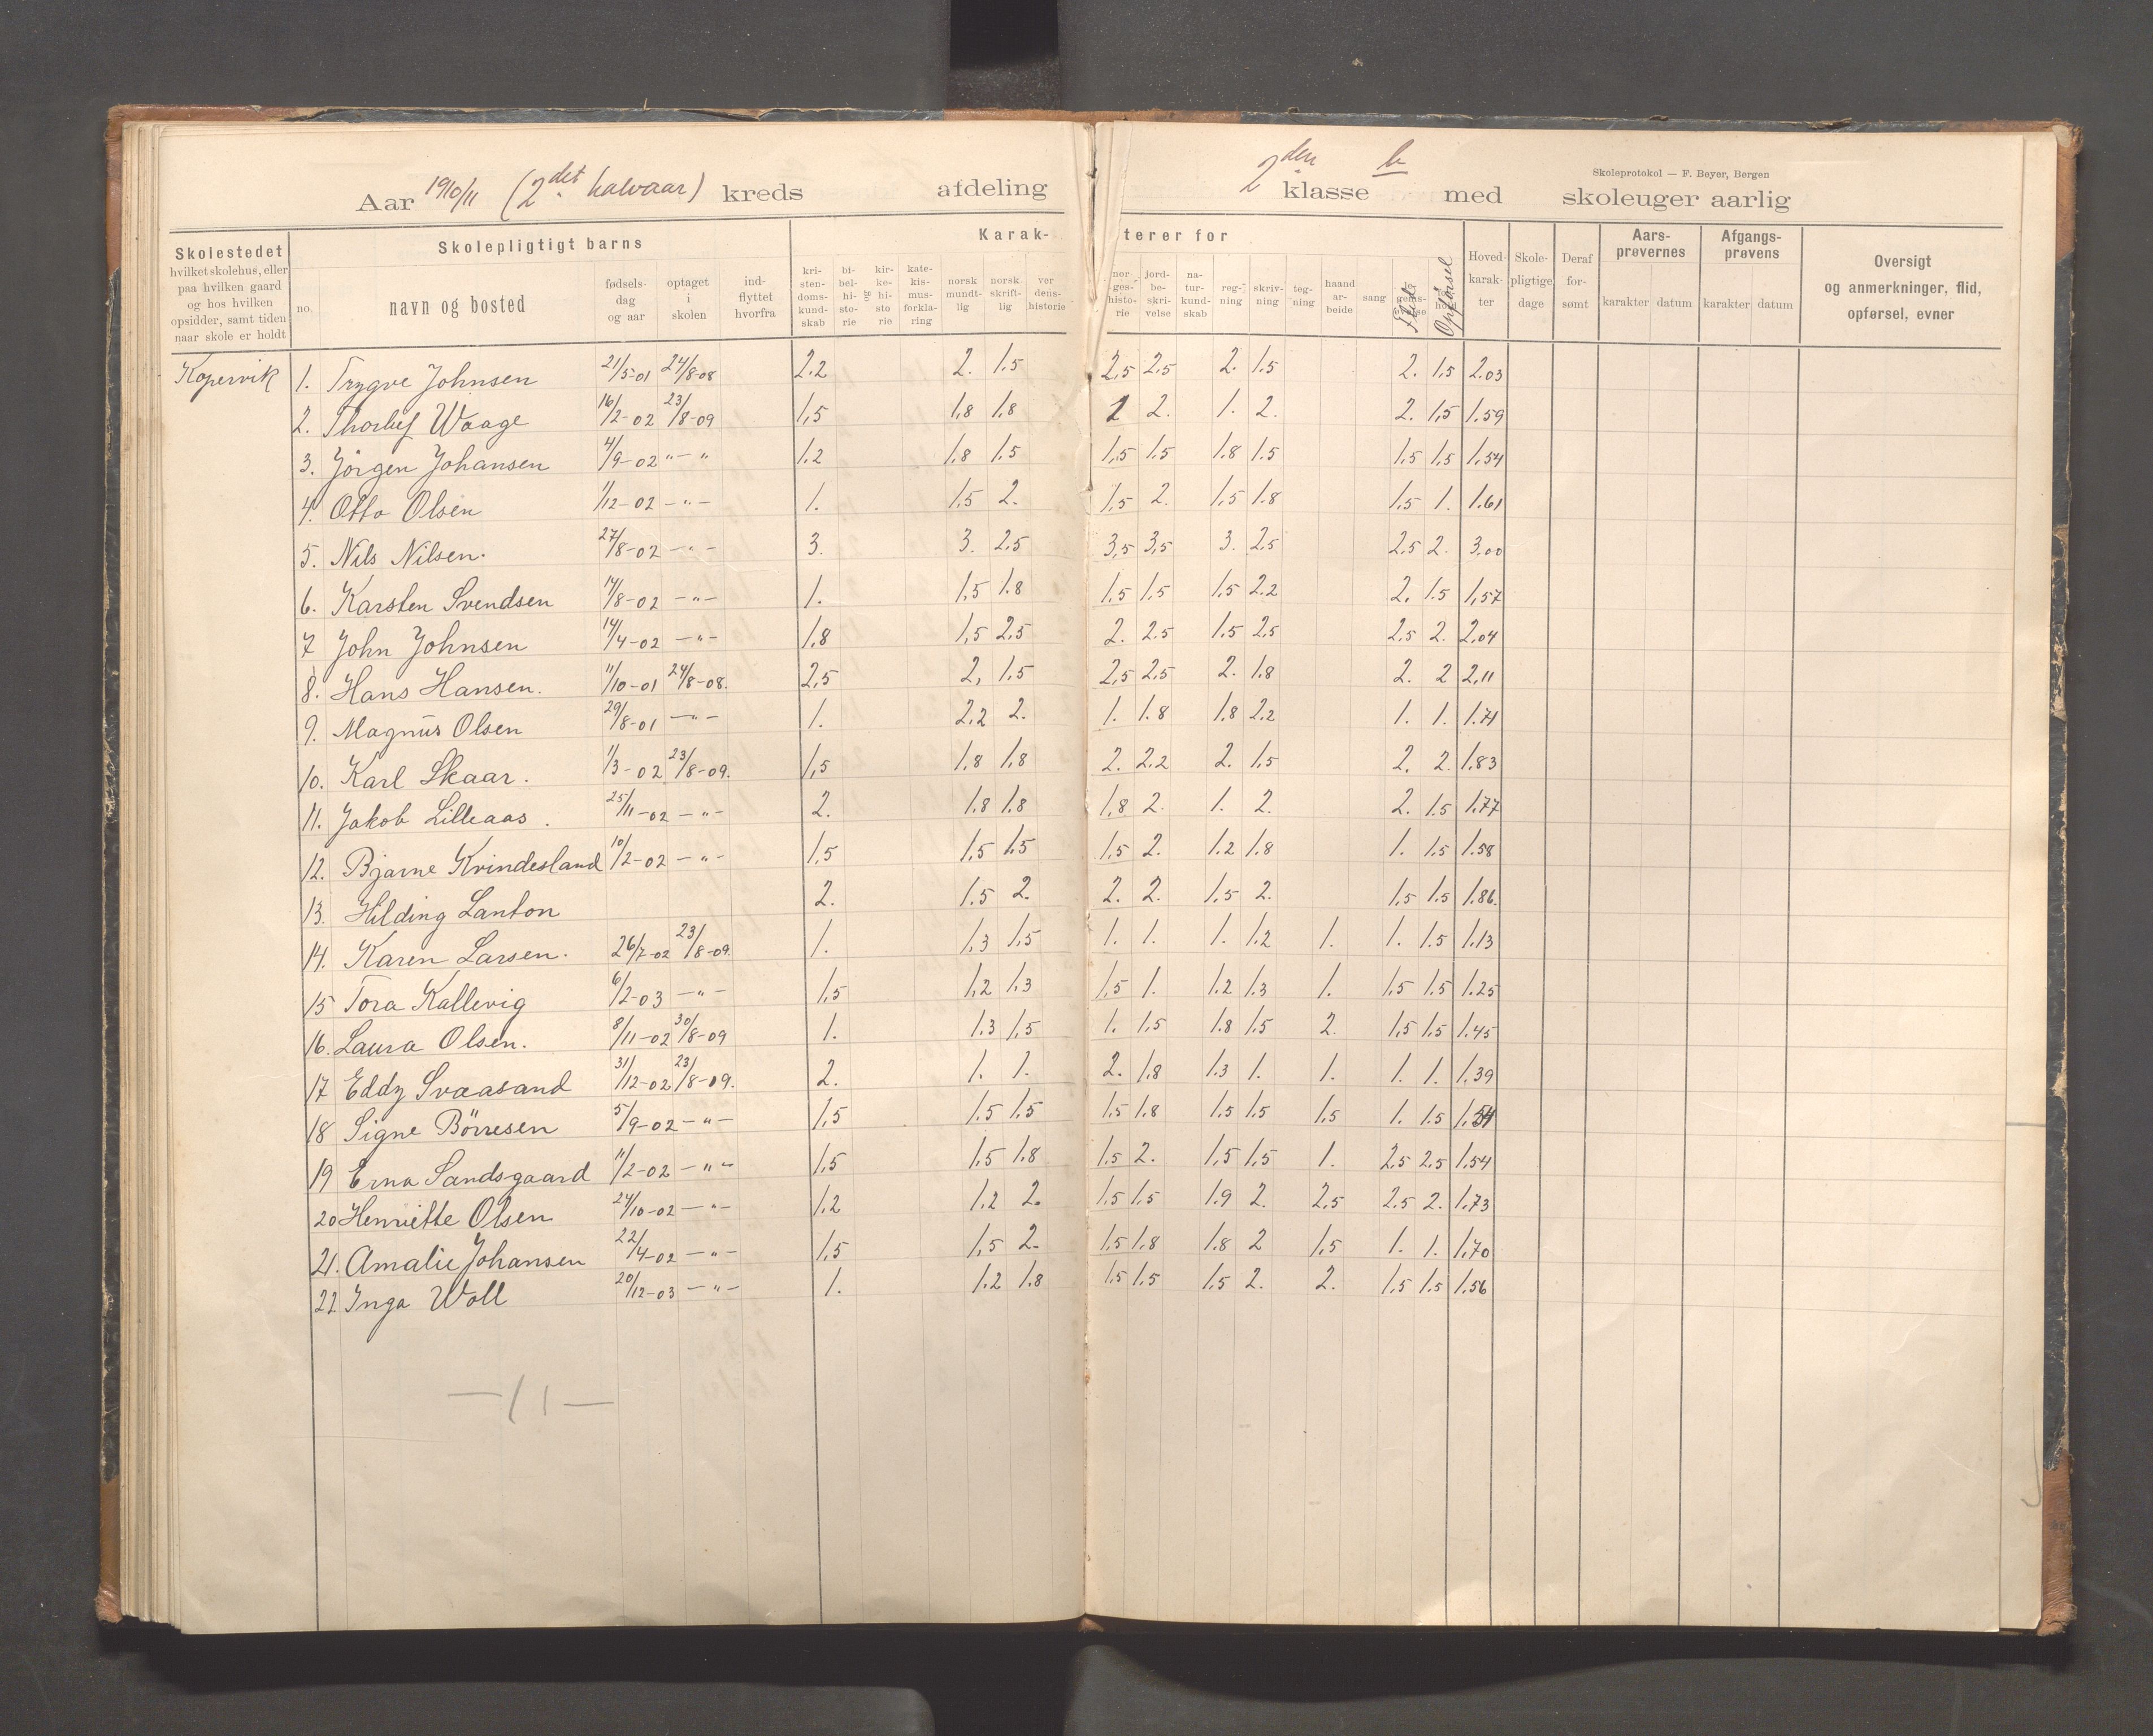 Aar 1910/11 (2det halvaar) kreds afdeling 2den klasse b med skoleuger aarlig
Skoleprotokol — F. Beyer, Bergen
Skolestedet hvilket skolehus, eller paa hvilken gaard og hos hvilken opsidder, samt tiden naar skole er holdt
Skolepligtigt barns
no. navn og bosted fødselsdag og aar optaget i skolen indflyttet hvorfra
Karakterer for
kristendomskundskab bibelhistorie og kirkehistorie katekismusforklaring norsk mundtlig norsk skriftlig verdenshistorie norgeshistorie jordbeskrivelse naturkundskab regning skrivning tegning haandarbeide sang Flid Opførsel
Hovedkarakter Skolepligtige dage Deraf forsømt
Aarsprøvernes karakter datum
Afgangsprøvens karakter datum
Oversigt og anmerkninger, flid, opførsel, evner
Kopervik 1. Trygve Johnsen 21/5-01 24/8-08 2.2 2. 1.5 2,5 2.5 2. 1.5 2. 1.5 2.03
2. Thorleif Waage 16/2-02 23/8-09 1,5 1,8 1.8 1 2. 1. 2. 2. 1,5 1.59
3. Jörgen Johansen 4/9-02 "-" 1.2 1.8 1.5 1,5 1.5 1.8 1.5 1.5 1.5 1,54
4. Otto Olsen 1/12-02 -"- 1. 1,5 2. 1,5 2. 1,5 1.8 1.5 1. 1.61
5. Nils Nilsen. 27/8-02 -"- 3. 3. 2,5 3,5 3,5 3. 2.5 2.5 2. 3.00
6. Karsten Svendsen 14/8-02 -"- 1. 1,5 1.8 1.5 1,5 1,5 2.2 2. 1.5 1,57
7 John Johnsen 14/4-02 -"- 1,8 1,5 2,5 2. 2.5 1.5 2,5 2,5 2. 2,04
8. Hans Hansen. 11/10-01 24/8-08. 2,5 2, 1,5 2,5 2,5 2. 1.8 2. 2 2,11
9. Magnus Olsen 29/8-01 -"- 1. 2,2 2. 1. 1.8 1.8 2.2 1. 1. 1.71
10. Karl Skaar. 1/3-02 23/8-09. 1,5 1.8 1,8 2. 2.2 2. 1,5 2. 2. 1.83
11. Jakob Lilleaas. 25/11-02 -"- 2. 1.8 1.8 1,8 2. 1. 2. 2. 1.5 1.77
12. Bjarne Kvindesland 10/2-02 -"- 1,5 1,5 1,5 1,5 2. 1.2 1.8 1. 1.5 1.58
13. Hilding Lanton 2. 1.5 2. 2. 2. 1.5 2. 1,5 1,5 1.86.
14. Karen Larsen. 26/7-02 23/8-09. 1. 1,3 1,5 1. 1. 1. 1.2 1. 1. 1.5 1.13
15 Tora Kallevig 6/2-03 -"- 1,5 1,2 1,3 1,5 1. 1.2 1.3 1. 1.5 1.5 1.25
16. Laura Olsen. 8/11-02 30/8-09 1. 1.3 1,5 1. 1.5 1.8 1.5 2. 1.5 1.5 1.45
17 Eddy Svaasand 31/12-02 23/8-09. 2. 1. 1. 2. 1.8 1.3 1. 1. 1. 1. 1,39
18 Signe Börresen 5/9-02 -"- 1,5 1.5 1.5 1.5 1.8 1.5 1.5 1,5 1. 1.5 1.54
19 Erna Sandsgaard 11/2-02 -"- 1,5 1.5 1.8 1.5 2. 1,5 1,5 1. 2.5 2,5 1,54
20 Henriette Olsen 24/10-02 -"- 1,2 1.2 2. 1.5 1.5 1.9 2. 2,5 2.5 2. 1.73
21. Amalie Johansen 22/4-02 -"- 1,5 1,5 2. 1.5 1.8 1.8 2 1,5 1. 1. 1,70
22 Inga Woll 20/12-03 -"- 1. 1.2 1.8 1.5 1.5 1.5 2. 2. 1.5 1.5 1.56